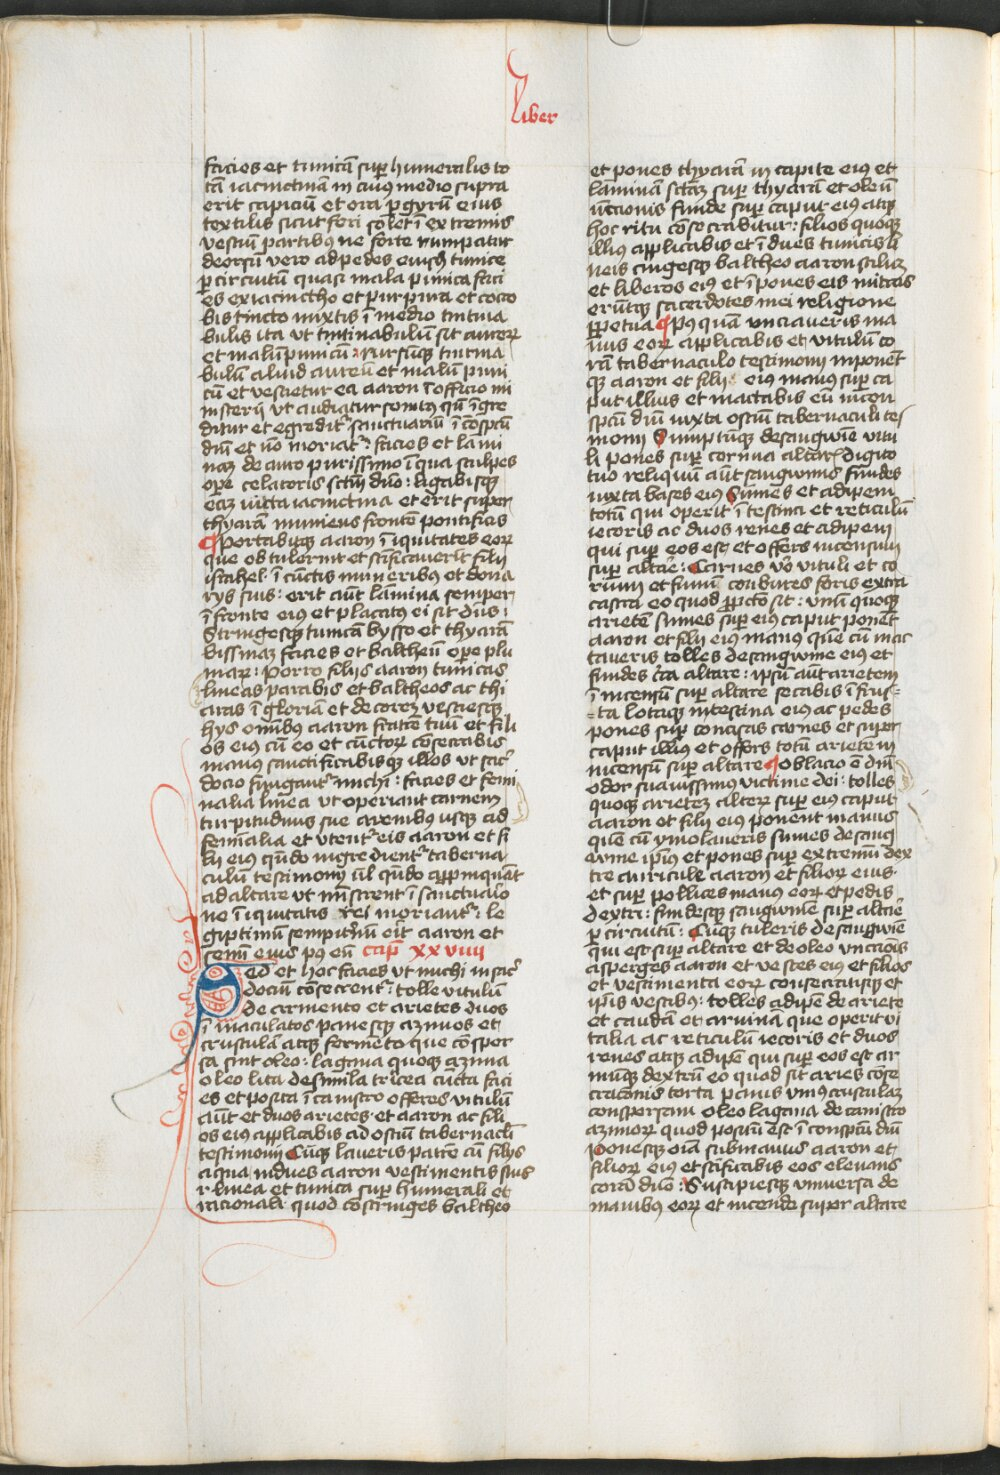 liber
facies et tunicā suꝑ humeralis to
tā iacinctinā in cuius medio supra
erit capiciū et ora ꝑ gyrū eius
textilis sicut feri solet ī extremis
vestiū partibꝰ ne forte rumpatur
deorsū vero ad pedes eiusdē tunice
ꝑ circuitū quasi mala punica faci
es ex iacinctho et purpura et cocco
bis tincto mixtis ī medio tintina
bulis ita vt tintinabulū sit aureꝝ
et malū punicū : rursūqꝫ tintina
bulū aliud aureū et malū puni
cū et vestietur ea aaron ī officio mi
nisterij vt audiatur sonitꝰ qn̄ īgre
ditur et egreditᷣ sanctuariū ī cōspcū
dn̄i et nō moriatᷣ : facies et lami
naꝫ de auro purissimo ī qua sculpes
oꝑe celatoris sctm̄ dn̄o : ligabisqꝫ
eaꝫ vitta iacinctina et erit super
thyarā muniens frontē pontificis
Portabitqꝫ aaron ī iquitates eoꝝ
que obtulerint et scīficauerīt filij
israhel · ī cūctis muneribꝰ et dona
rijs suis : erit aūt lamina semper
ī fronte eiꝰ et placatꝰ ei sit dn̄s :
Stringesqꝫ tunicā bysso et thyarā
bissinaꝫ facies et baltheū oꝑe plu
marꝫ : Porro filijs aaron tunicas
lineas parabis et baltheos ac thi
aras ī gloriā et decoreꝫ vestiesqꝫ
hys omībꝰ aaron fratrē tuū et fili
os eiꝰ cū eo et cūctoꝝ cōsecrabis
manus sanctificabisqꝫ illos vt sacᷣ
docio fungantᷣ michi : facies et femi
nalia linea vt operiant carnem
turpitudinis sue a renibꝰ usqꝫ ad
feminalia et vtentᷣ eis aaron et fi
lij eiꝰ qn̄do ingredientᷣ taberna
culū testimonij ul̄ qn̄do appinquāt
ad altare vt mīstrent ī sanctuario
ne ī iquitatis rei moriantᷣ : le
giptimū sempitᷣnū erit aaron et
semī eius pꝰ eū cap̄ xxviiij
Sed et hoc facies vt michi in sacᷣ
dociū cōsecrentᷣ : tolle vitulū
de armento et arietes duos
ī maculatos panesqꝫ azimos et
crustulā absqꝫ fermēto que cōsper
sa sint oleo : lagana quoqꝫ azima
oleo lita de simila tricea cūcta faci
es et posita ī canistro offeres vitulū
aūt et duos arietes · et aaron ac fili
os eiꝰ applicabis ad ostiū tabernacl̄i
testimonij Cūqꝫ laueris patrē cū filijs
aqua indues aaron vestimentis suis
i · linea et tunica suꝑ humerali et
racionali quod cōstringes baltheo
et pones thyarā in capite eiꝰ et
laminā sctāꝫ suꝑ thyarā et oleū
vnctionis funde suꝑ caput eiꝰ atqꝫ
hoc ritu cōsecrabitur : filios quoqꝫ
illiꝰ applicabis et īdues tunicis li
neis cingesqꝫ baltheo aaron sciliꝫ
et liberos eiꝰ et īpones eis mitras
erūtqꝫ sacerdotes mei religione
ꝑpetua Pꝰ quā vnciaueris ma
nus eoꝝ applicabis et vitulū co
rā tabernaculo testimonij imponēt
qꝫ aaron et filij · eiꝰ manus suꝑ ca
put illius et mactabis eū in con
spcū dn̄i iuxta ostiū tabernaculi tes
monij Sumptūqꝫ de sangwīe vitu
li pones suꝑ cornua altarꝭ digito
tuo reliquū aūt sangwinis fundes
iuxta bases eiꝰ Sumes et adipem
totū qui operit ītestina et reticulū
iecoris ac duos renes et adipem
qui suꝑ eos est et offers incensum
suꝑ altare : Carnes vō vituli et co
rium et fimū conbures foris extra
castra eo quod ꝓ pctō sit : vnū quoqꝫ
arietē sumes suꝑ eiꝰ caput ponēt
aaron et filij eiꝰ manus quē cū mac
taueris tolles de sangwine eiꝰ et
fundes cᷓa altare : ipsū aūt arietem
ī incensū suꝑ altare secabis ī frus
ta lotaqꝫ intestina eiꝰ ac pedes
pones suꝑ concisas carnes et super
caput illiꝰ et offers totū arietem
incensū suꝑ altare oblacio ē dn̄i
odor suauissimꝰ victime dei : tolles
quoqꝫ arieteꝫ alterꝫ suꝑ eiꝰ caput
aaron et filij eiꝰ ponent manus
quē cū ymolaueris sumes de sang
wine ip̄ius et pones suꝑ extremū dex
tre auricule aaron et filioꝝ eius ·
et suꝑ pollices manꝰ eoꝝ et pedis
dextri : fundesqꝫ sangwinē suꝑ altare
ꝑ circuitū : Cūqꝫ tuleris de sangwīe
qui est suꝑ altare et de oleo vnctiōis
asperges aaron et vestes eiꝰ et filios
et vestimenta eoꝝ consecratisqꝫ et
ip̄is vestibꝰ : tolles adipē de ariete
et caudā et aruinā que operit vi
talia ac reticulū iecoris et duos
renes atqꝫ adipē qui suꝑ eos est ar
mūqꝫ dextrū eo quod sit aries cōse
cracionis torta panis vniꝰ crustulaꝫ
conspersam oleo lagana de canistro
azimoꝝ quod positū est ī conspcū dn̄i
Ponesqꝫ oīa sub manus aaron et
filioꝝ eiꝰ et scīficabis eos eleuans
corā dn̄o : Suscipiesqꝫ vniuersa de
manibꝰ eoꝝ et incende super altare